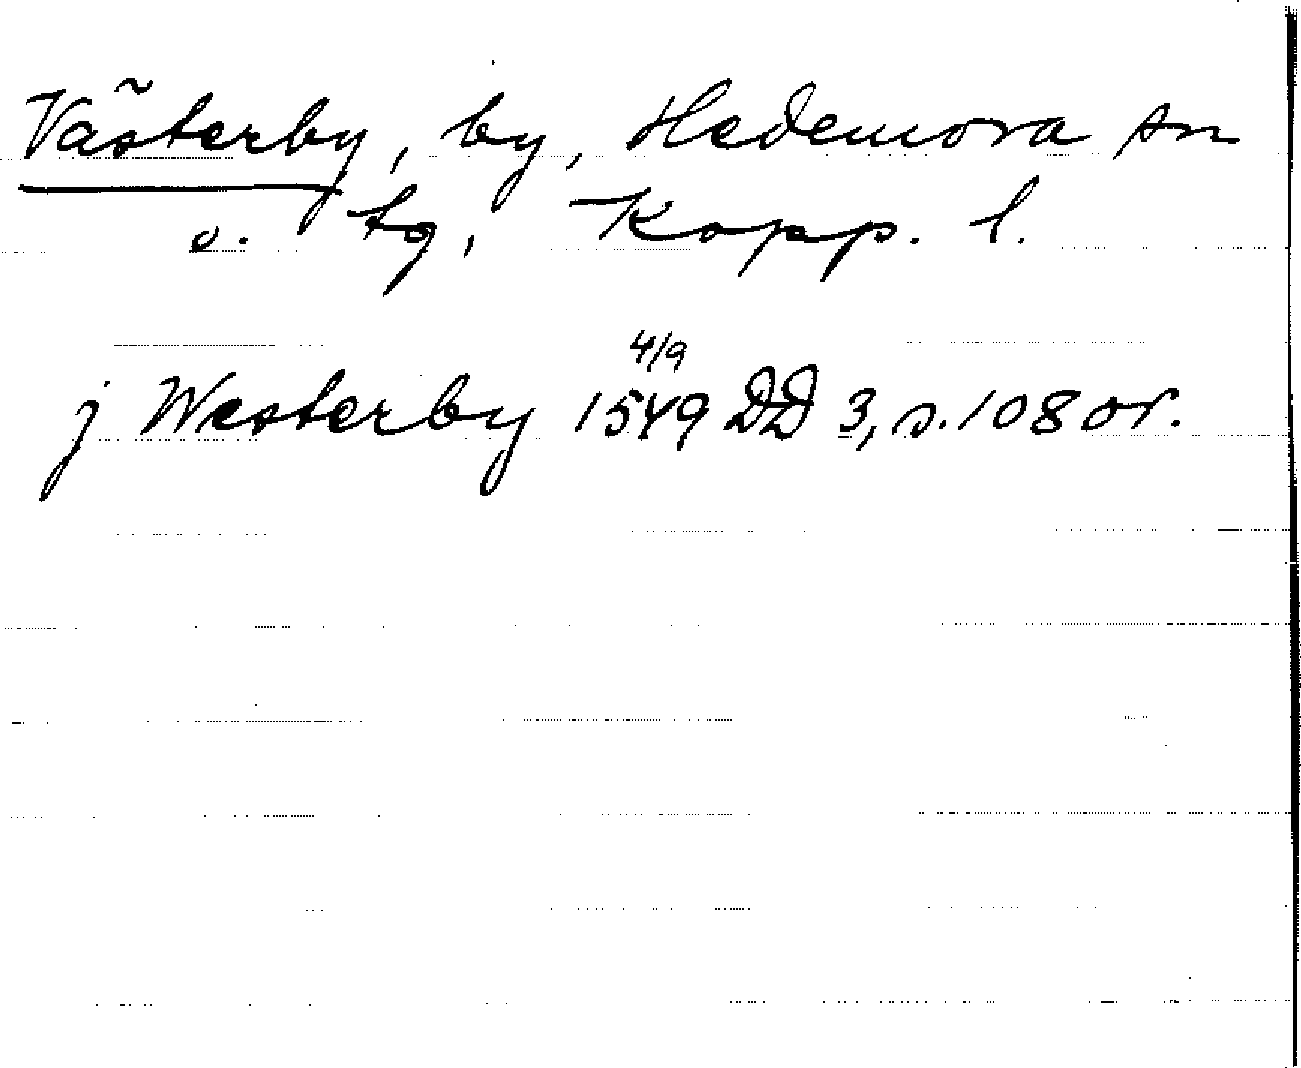 Västerby, by, Hedemora sn
o. tg, Kopp. l.
j Westerby 1549 4/9 DD 3, s. 108 or.